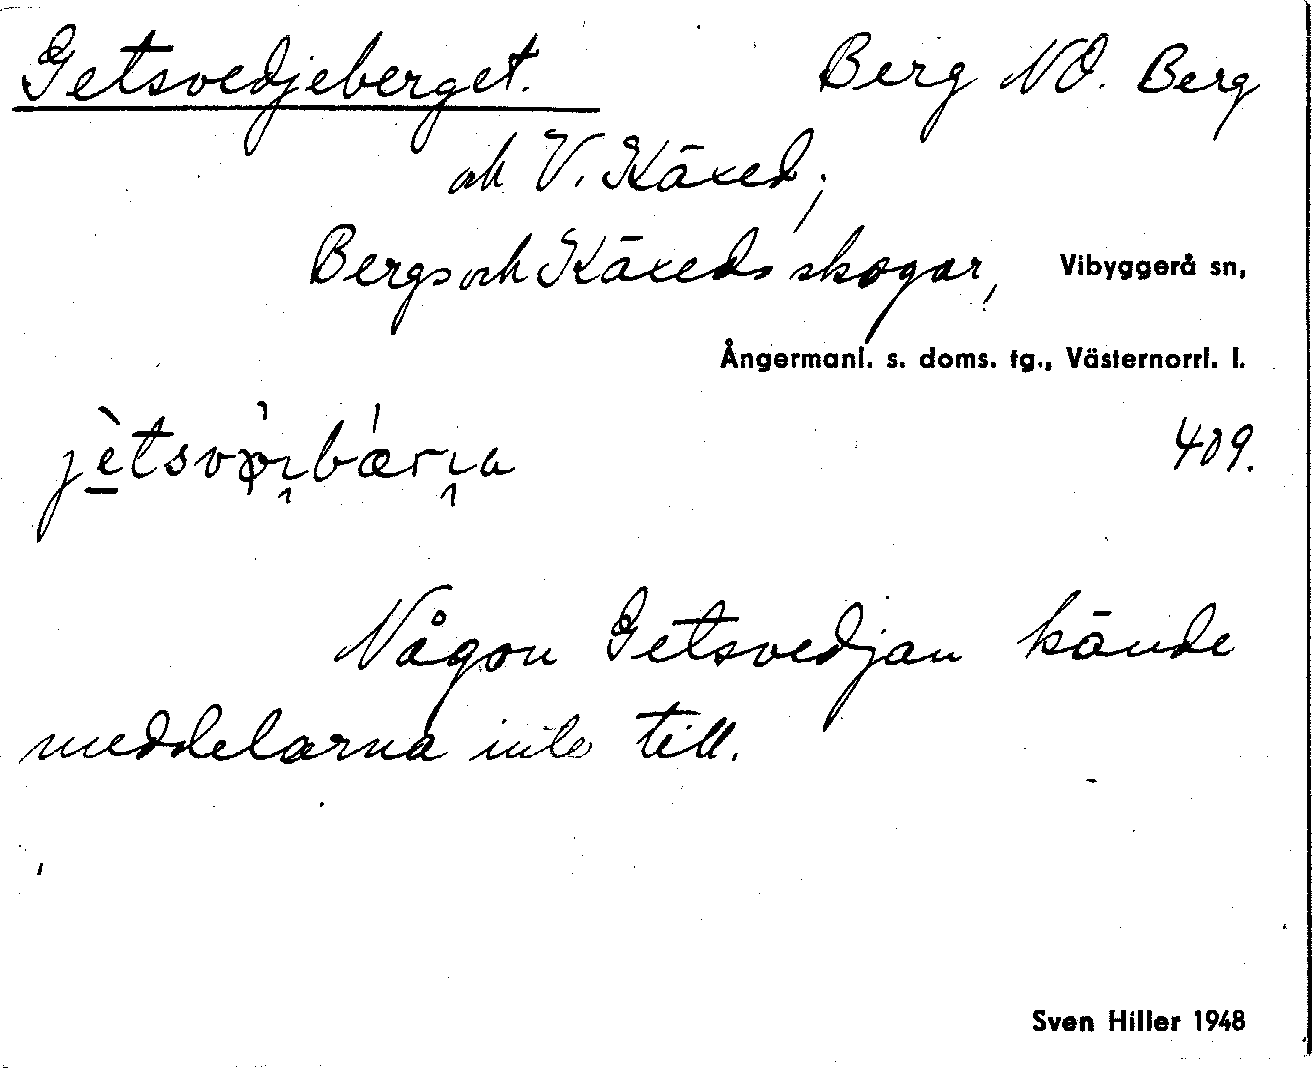 Getsvedjeberget. Berg NO. Berg
och V. Käxed;
Bergs och Käxeds skogar, Vibyggerå sn,
Ångermanl. s. doms. tg., Västernorrl. l.
409.
Någon Getsvedjan kände
meddelarna inte till.
Sven Hiller 1948